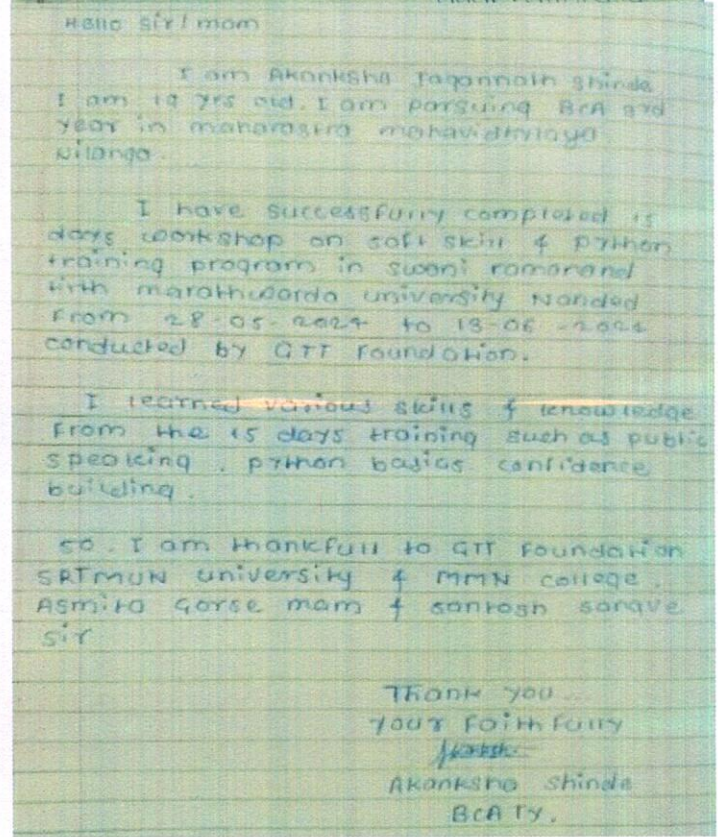 Hello sir/mam
I am Akanksha Jagannath shinde
I am 19 yrs old. I am parsuing BCA 3rd
year in maharastra mahavidhylaya
Nilanga.
I have successfully completed 15
days workshop on soft skill & python
training program in swami ramanand
tirth marathwarda university Nanded
From 28-05-2024 to 13-06-2024
conducted by GTT Foundation.
I learned various skills & knowledge
From the 15 days training such as public
speaking, python basics confidence
building.
so. I am thankfull to GTT Foundation
SRTMUN university & MMN college.
Asmita Gorse mam & santosh sanave
sir
Thank you...
your Faithfully
Akanksha shinde
BCA TY.